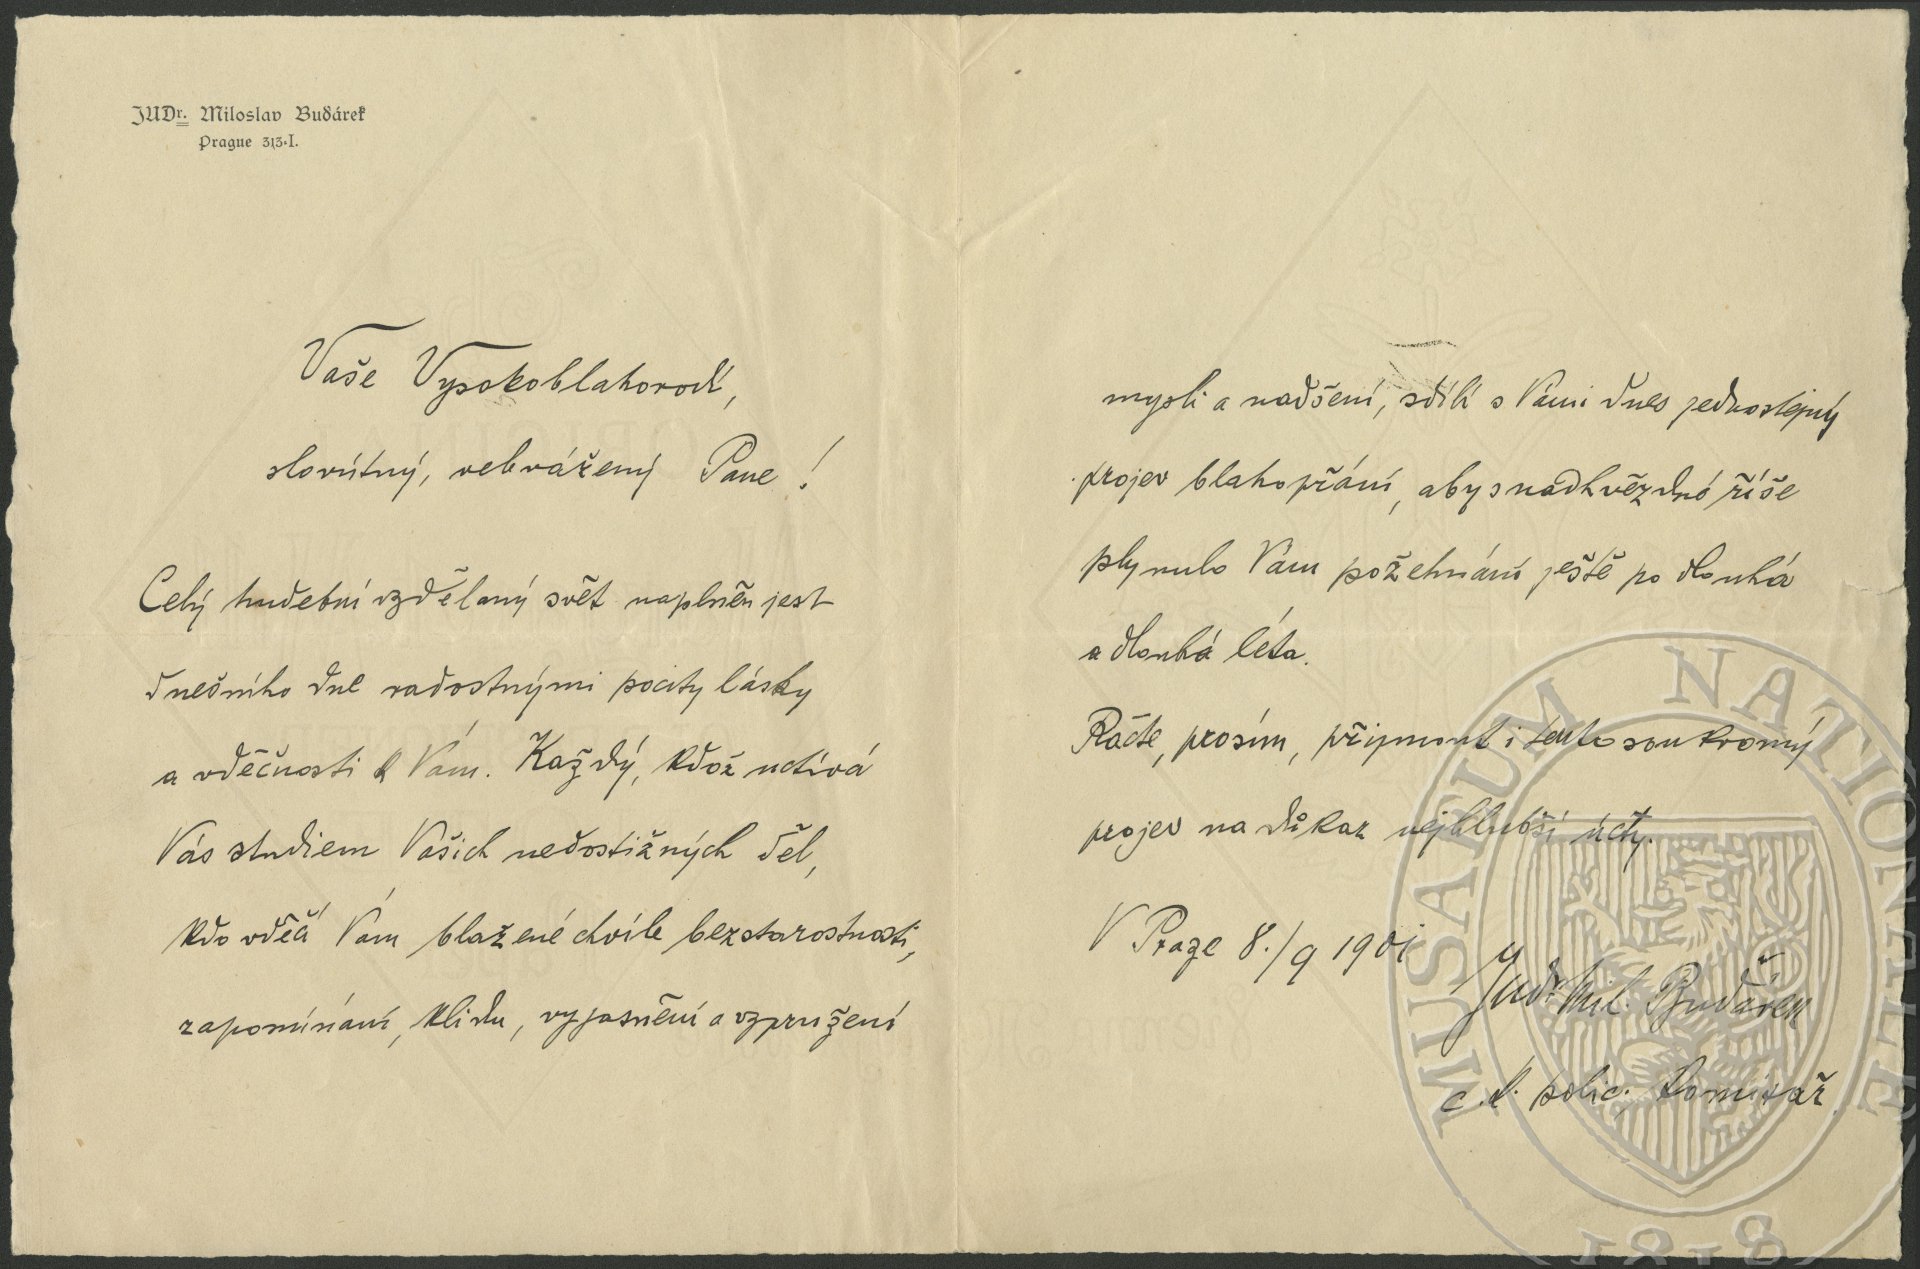 JUDr. Miloslav Budárek
Prague 313-I.
Vaše Vysokoblahorodí,
slovútný, velevážený Pane!
Celý hudební vzdělaný svět naplněn jest
dnešního dne radostnými pocity lásky
a vděčnosti k Vám. Každý, kdož uctívá
Vás studiem Vašich nedostižných děl,
kdo vděčí Vám blažené chvíle bezstarostnosti,
zapomínání, klidu, vyjasnění a vzpružení
mysli a nadšení, sdílí s Vámi dnes jednostejný
projev blahopřání, aby s nadhvězdné říše
plynulo Vám požehnání ještě po dlouhá
a dlouhá léta.
Račte, prosím, přijmout i tento soukromý
projev na důkaz nejhlubší úcty.
V Praze 8./9 1901
JUDr Mil. Budárek
c. k. polic. komisař.
MUSAEUM NATIONALE
1818